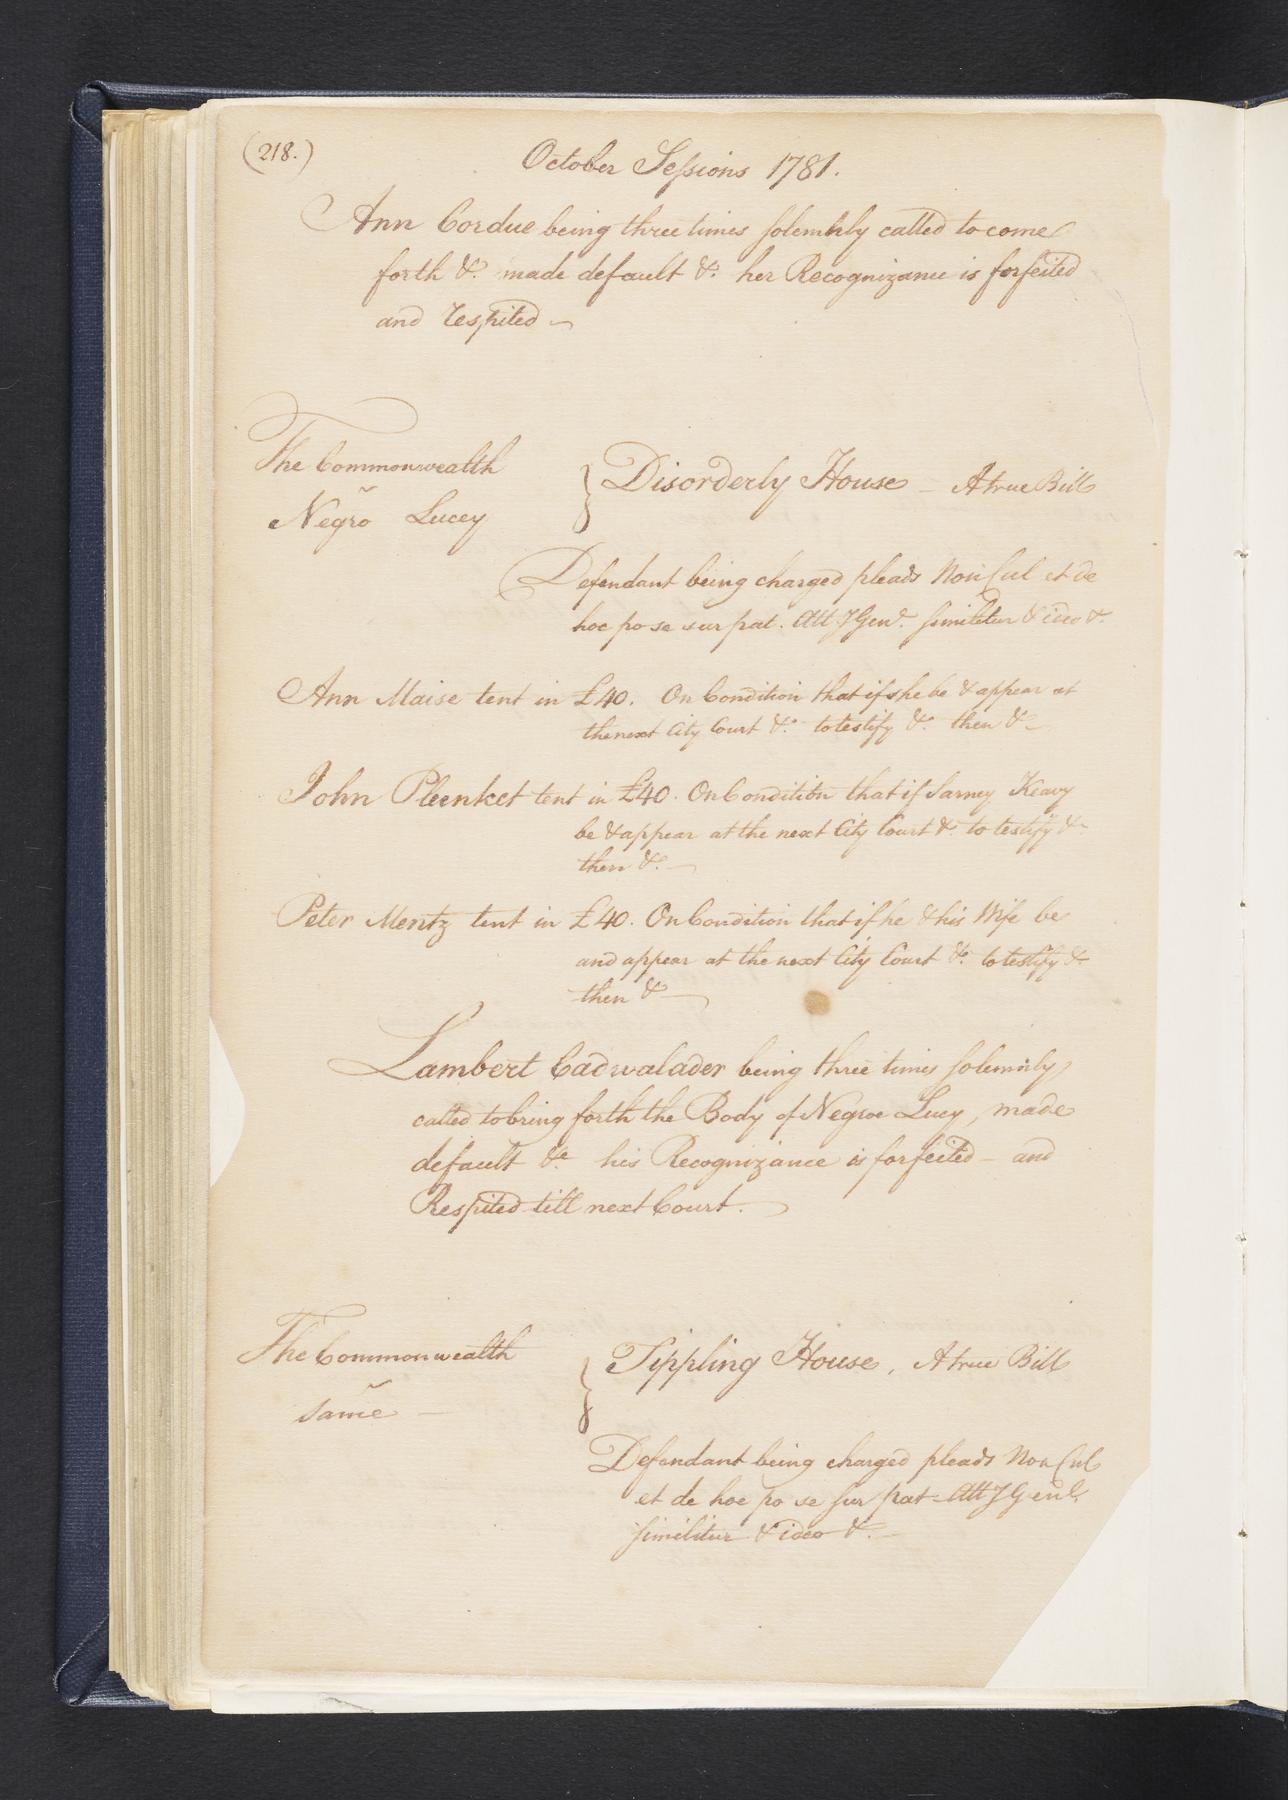 (218.)
October Sessions 1781.
Ann Cordue being three times solemnly called to come
forth &c. made default &c. her Recognizance is forfeited
and respited
The Commonwealth
Negro Lucey
Disorderly House - A true Bill
Defendant being charged pleads Non Cul et de
hoc po se sur pat. Att. J Genl. similitur & ideo &c.
Ann Maise tent in £40. On Condition that if she be & appear at
the next City Court &c. to testify &c. then &c
John Plunket tent in £40. On Condition that if Sarney Keavy
be & appear at the next City Court &c. to testify &c
then &c.
Peter Mentz tent in £40. On Condition that if he & his Wife be
and appear at the next City Court &c. to testify &c
then &c
Lambert Cadwalader being three times solemnly
called to bring forth the Body of Negroe Lucy, made
default &c. his Recognizance is forfeited - and
Respited till next Court.
The Commonwealth
same
Tippling House, A true Bill
Defendant being charged pleads Non Cul
et de hoc po se sur pat - Att J Genl.
similitur & ideo &c.